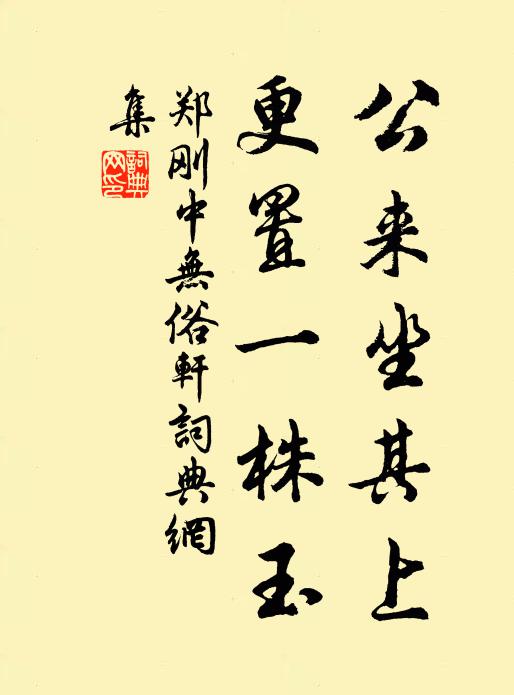 公来坐其上
更置一株玉
郑刚中無俗軒詞典網
集
詞典網印